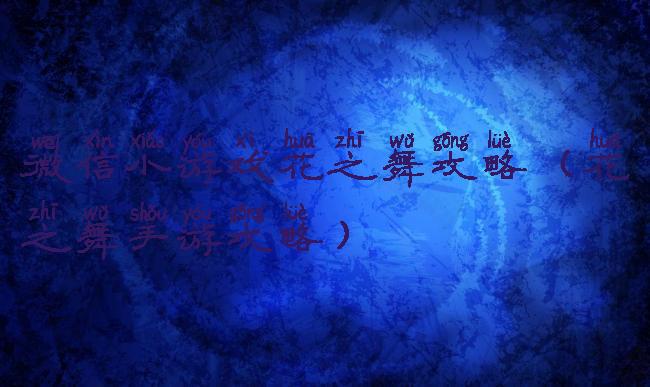 wēi xìn xiǎo yóu xì huā zhī wǔ gōng lüè huā
微信小游戏花之舞攻略（花
zhī wǔ shǒu yóu gōng lüè
之舞手游攻略）